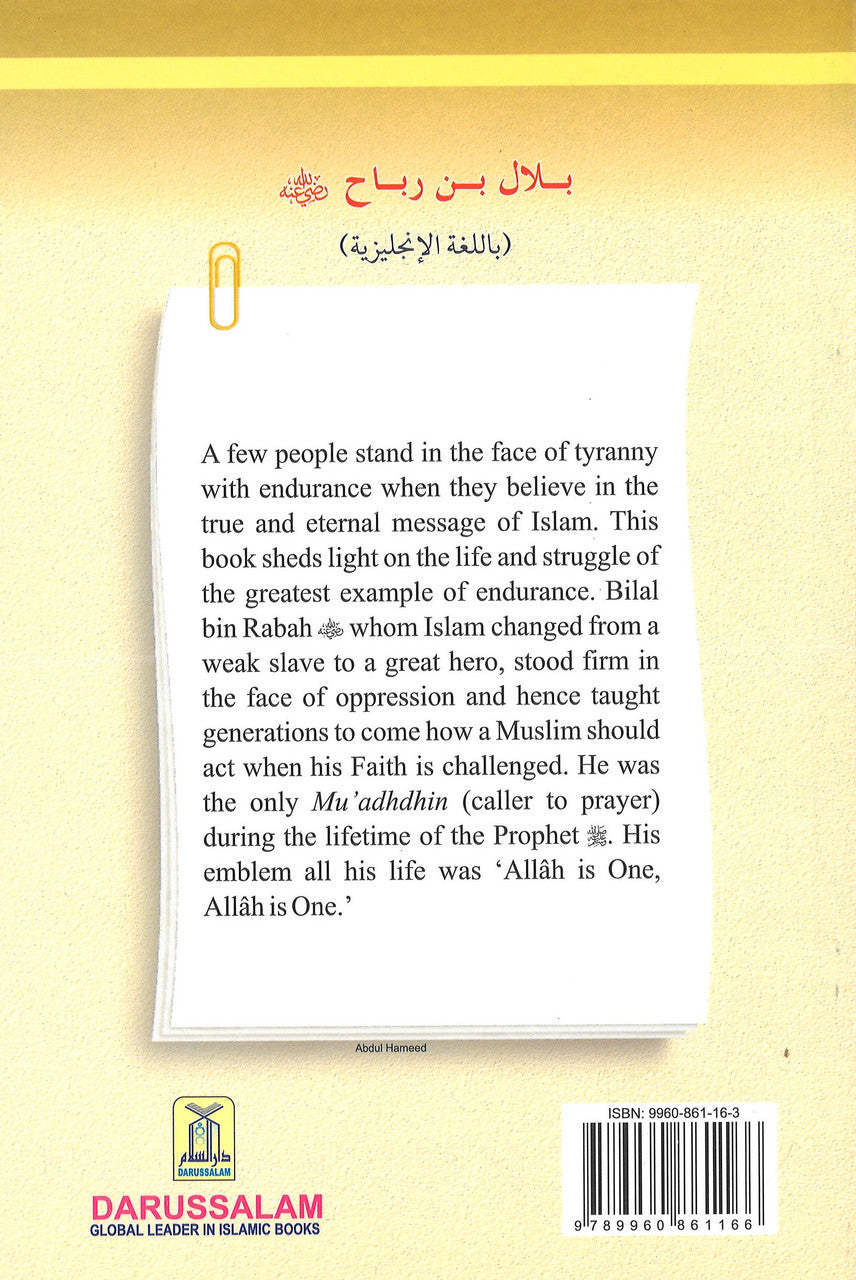 بـلال بـن ربـاح رضي الله عنه
(باللغة الإنجليزية)
A few people stand in the face of tyranny
with endurance when they believe in the
true and eternal message of Islam. This
book sheds light on the life and struggle of
the greatest example of endurance. Bilal
bin Rabah رضي الله عنه whom Islam changed from a
weak slave to a great hero, stood firm in
the face of oppression and hence taught
generations to come how a Muslim should
act when his Faith is challenged. He was
the only Mu’adhdhin (caller to prayer)
during the lifetime of the Prophet ﷺ. His
emblem all his life was ‘Allâh is One,
Allâh is One.’
Abdul Hameed
دارالسلام
DARUSSALAM
DARUSSALAM
GLOBAL LEADER IN ISLAMIC BOOKS
ISBN: 9960-861-16-3
9 789960 861166